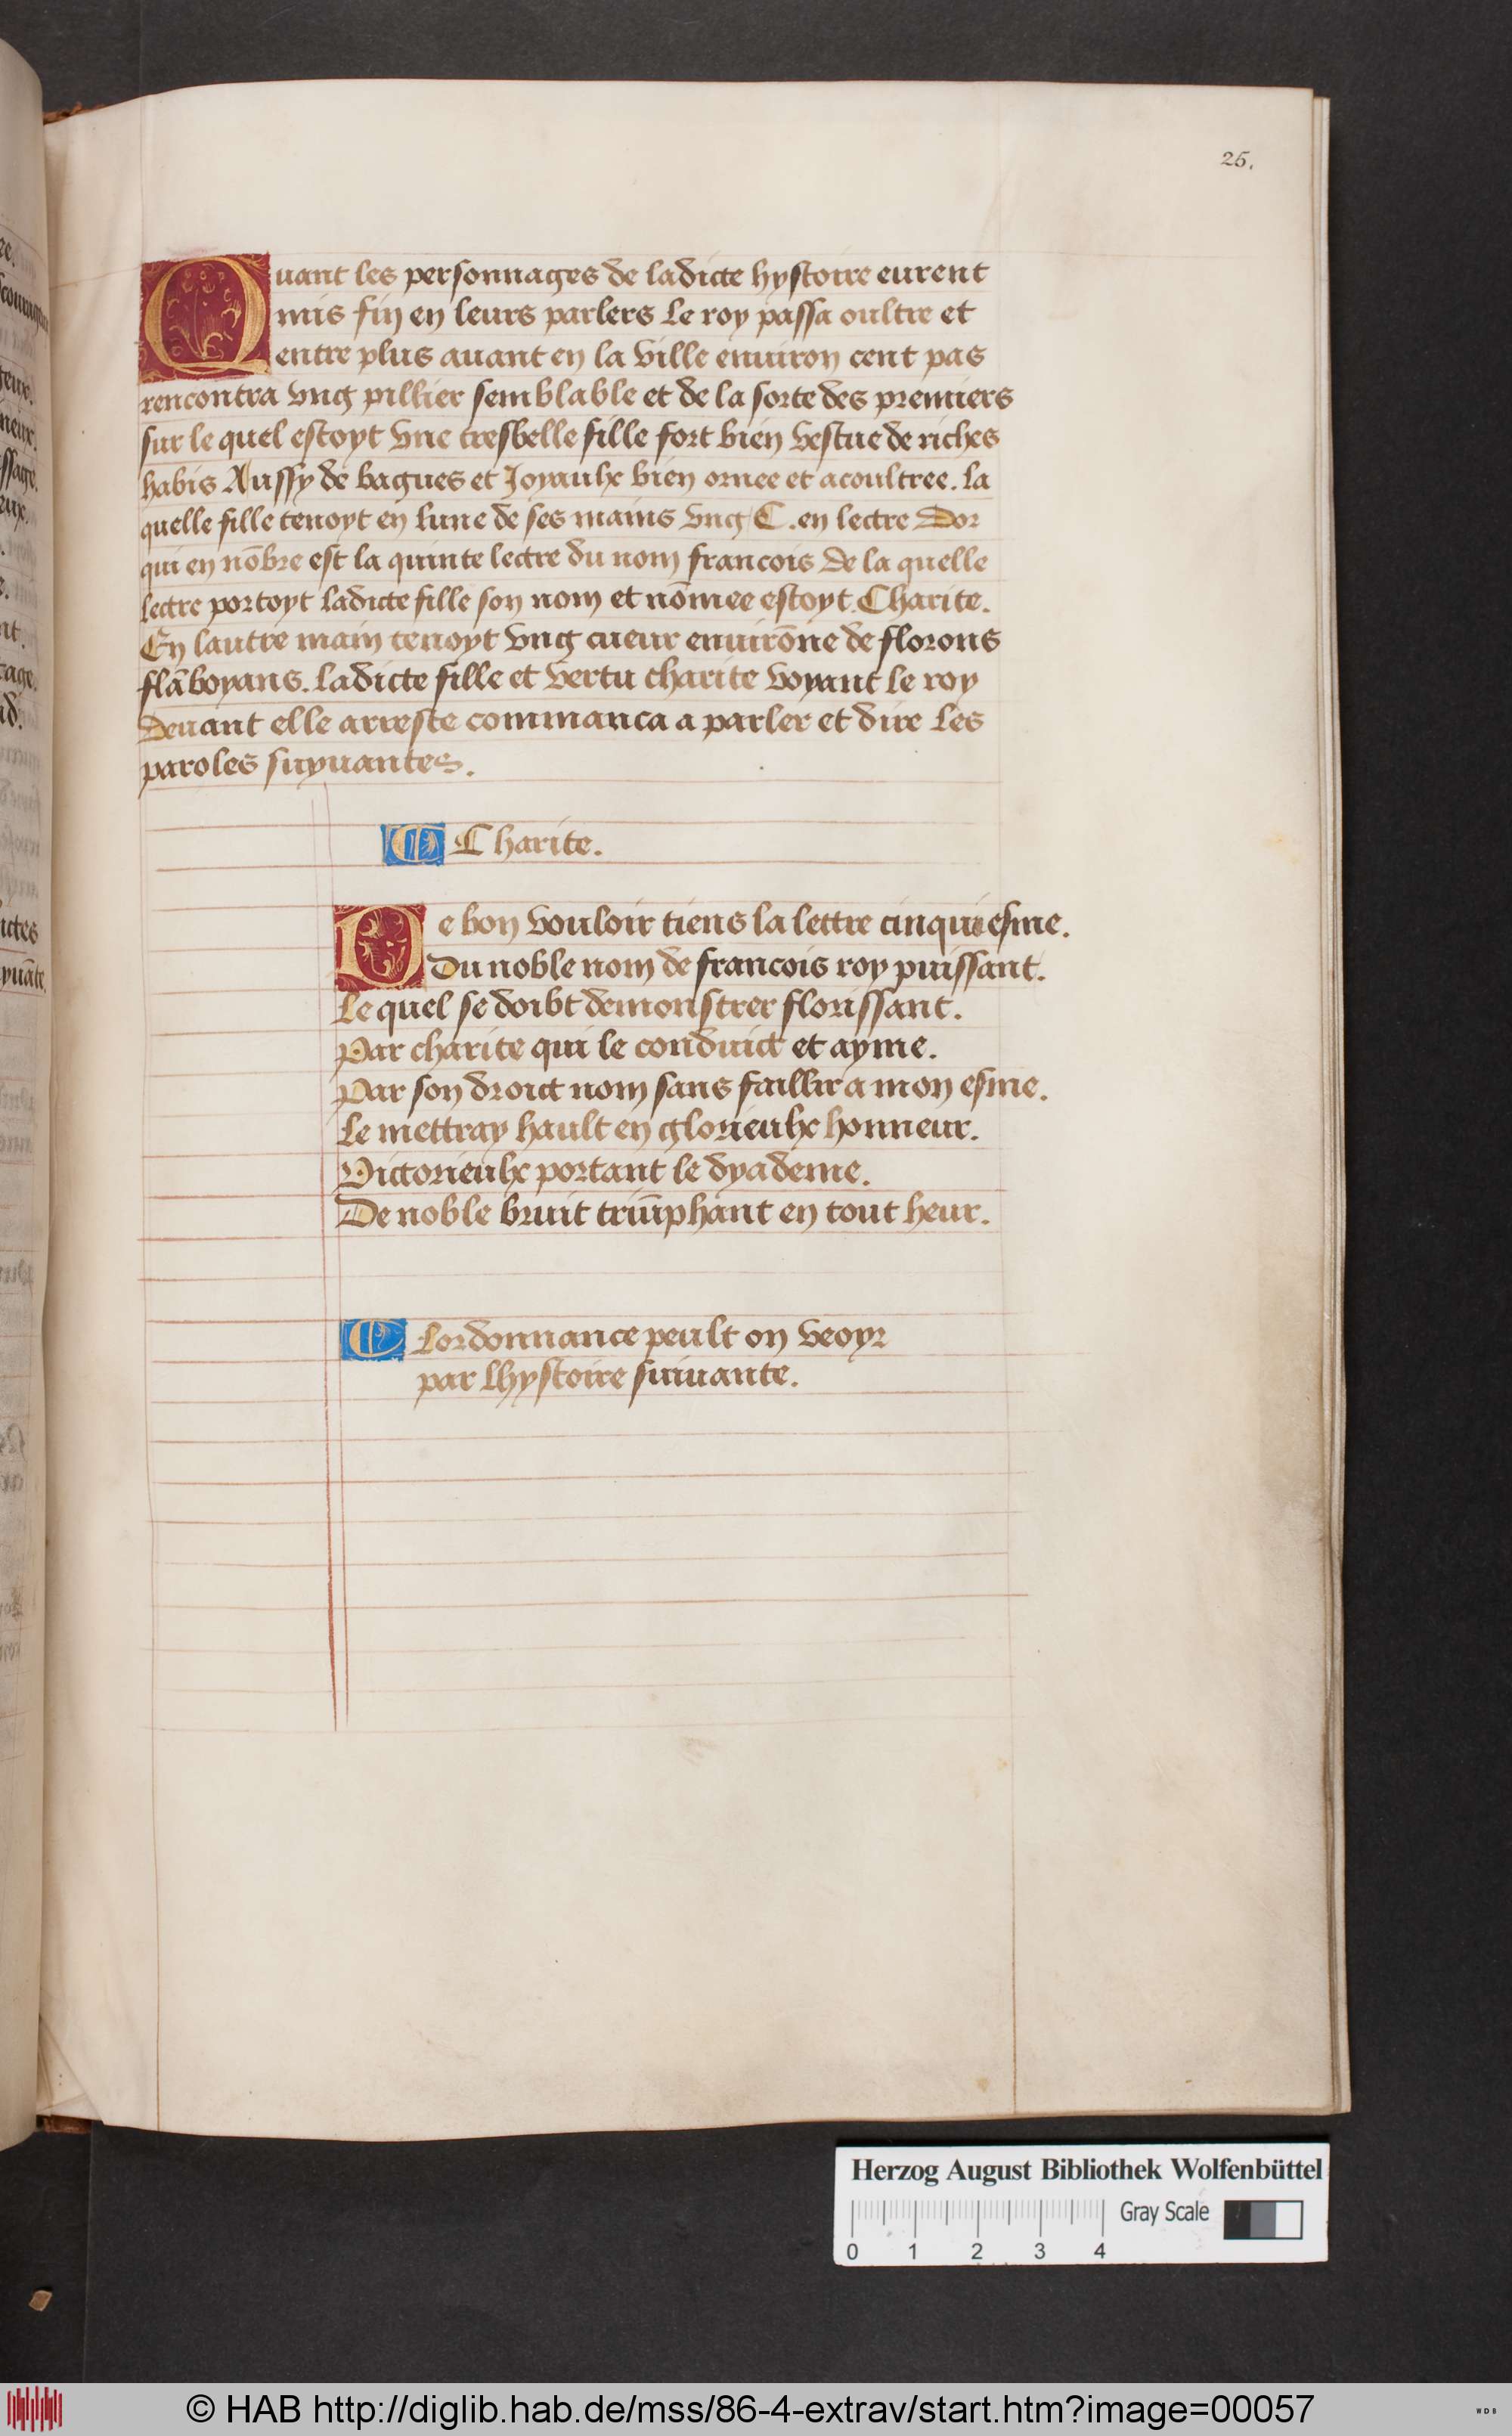 25.
Quant les personnages de ladicte hystoire eurent
mis fin en leurs parlers le roy passa oultre et
entre plus auant en la ville enuiron cent pas
rencontra vng pillier semblable et de la sorte des premiers
sur le quel estoyt vne tresbelle fille fort bien vestue de riches
habis Aussy de bagues et Joyaulx bien ornee et acoultree. la
quelle fille tenoyt en lune de ses mains vng C. en lectre Dor
qui en nōbre est la quinte lectre du nom francois de la quelle
lectre portoyt ladicte fille son nom et nōmee estoyt. Charite.
En lautre main tenoyt vng cueur enuirōne de florons
flāboyans. ladicte fille et vertu charite voyant le roy
Deuant elle arreste commanca a parler et dire les
paroles suyuantes.
C Charite.
De bon vouloir tiens la lettre cinquiesme.
Du noble nom de francois roy puissant.
Le quel se doibt demonstrer florissant.
Par charite qui le conduict et ayme.
Par son droict nom sans faillir a mon esme.
Le mettray hault en glorieulx honneur.
Victorieulx portant le dyademe.
De noble bruit triūphant en tout heur.
C Lordonnance peult on veoyr
par lhystoire suiuante.
Herzog August Bibliothek Wolfenbüttel
Gray Scale
0 1 2 3 4
© HAB http://diglib.hab.de/mss/86-4-extrav/start.htm?image=00057
WDB